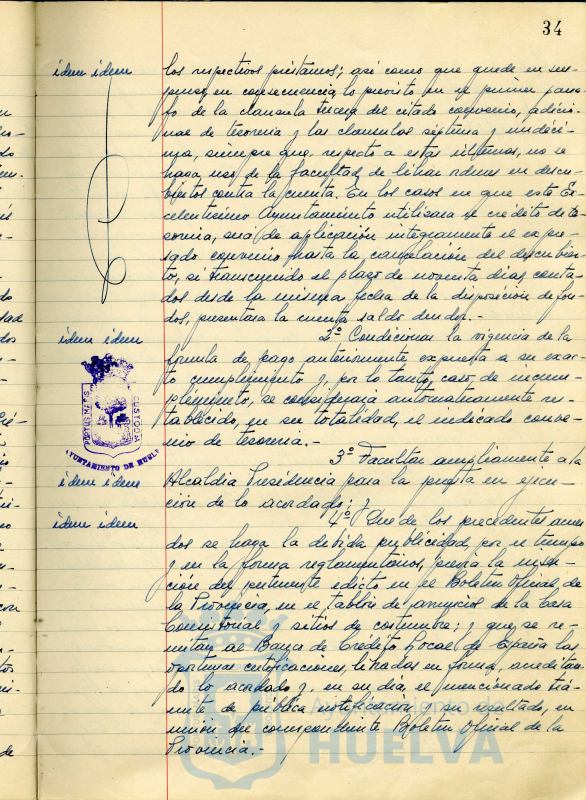 34
idem idem
los respectivos préstamos; así como que quede en sus-
penso, en consecuencia, lo previsto en el primer párra-
fo de la clausula tercera del citado convenio, adicio-
nal de tesorería y las clausulas séptima y undéci-
ma, siempre que, respecto a estas últimas, no se
haga uso de la facultad de librar ordenes en descu-
biertos contra la cuenta. En los casos en que este Ex-
celentísimo Ayuntamiento utilizara el crédito de te-
sorería, será de aplicación integramente el expre-
sado convenio hasta la cancelación del descubier-
to, si transcurrido el plazo de noventa días, conta-
dos desde la misma fecha de la disposición de fon-
dos, presentara la cuenta saldo deudor.-
idem idem
2º Condicionar la vigencia de la
formula de pago anteriormente expuesta a su exac-
to cumplimiento y, por lo tanto, caso de incum-
plimiento, se considerará automaticamente res-
tablecido, en su totalidad, el indicado conve-
nio de tesorería.-
PORTUS MARIS CUSTODIA
AYUNTAMIENTO DE HUELVA
idem idem
3º Facultar ampliamente a la
Alcaldía Presidencia para la puesta en ejecu-
ción de lo acordado; y
idem idem
4º Que de los precedentes acuer-
dos se haga la debida publicidad, por el tiempo
y en la forma reglamentarios, previa la inser-
ción del pertinente edicto en el Boletín Oficial de
la Provincia, en el tablón de anuncios de la Casa
Consistorial y sitios de costumbre; y que se re-
mitan al Banco de Crédito Local de España las
oportunas certificaciones, libradas en forma, acreditan-
do lo acordado y, en su día, el mencionado trá-
mite de pública notificación y su resultado, en
unión del correspondiente Boletín Oficial de la
Provincia.-
Ayuntamiento de
HUELVA